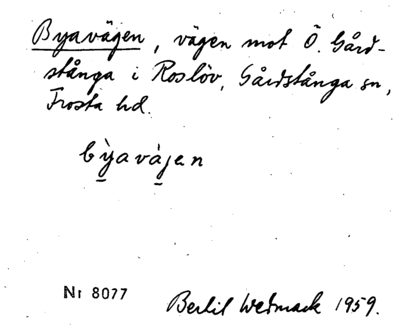 Byavägen, vägen mot Ö. Gård-
stånga i Roslöv, Gårdstånga sn,
Frosta hd.
b̀yavàjen
Nr 8077
Bertil Wedmark 1959.